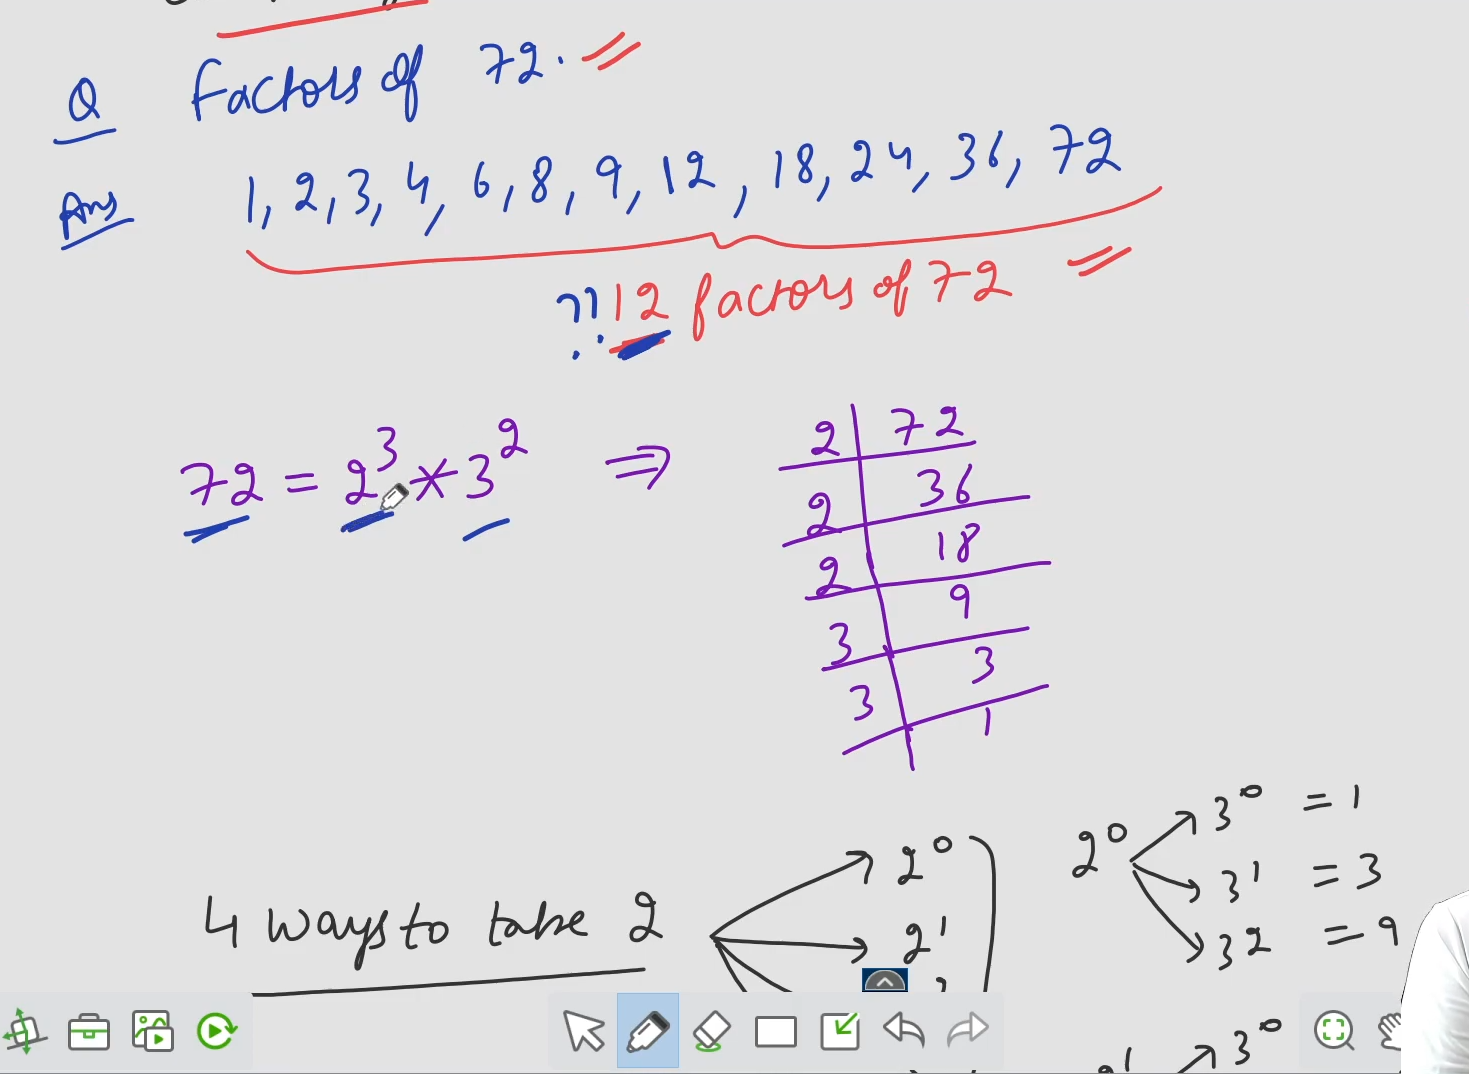 Q Factors of 72.
Ans 1, 2, 3, 4, 6, 8, 9, 12, 18, 24, 36, 72
?? 12 factors of 72
72 = 2³ * 3² ⇒
2 | 72
2 | 36
2 | 18
3 | 9
3 | 3
1
4 ways to take 2
2⁰
2¹
2⁰
3⁰ = 1
3¹ = 3
3² = 9
3⁰